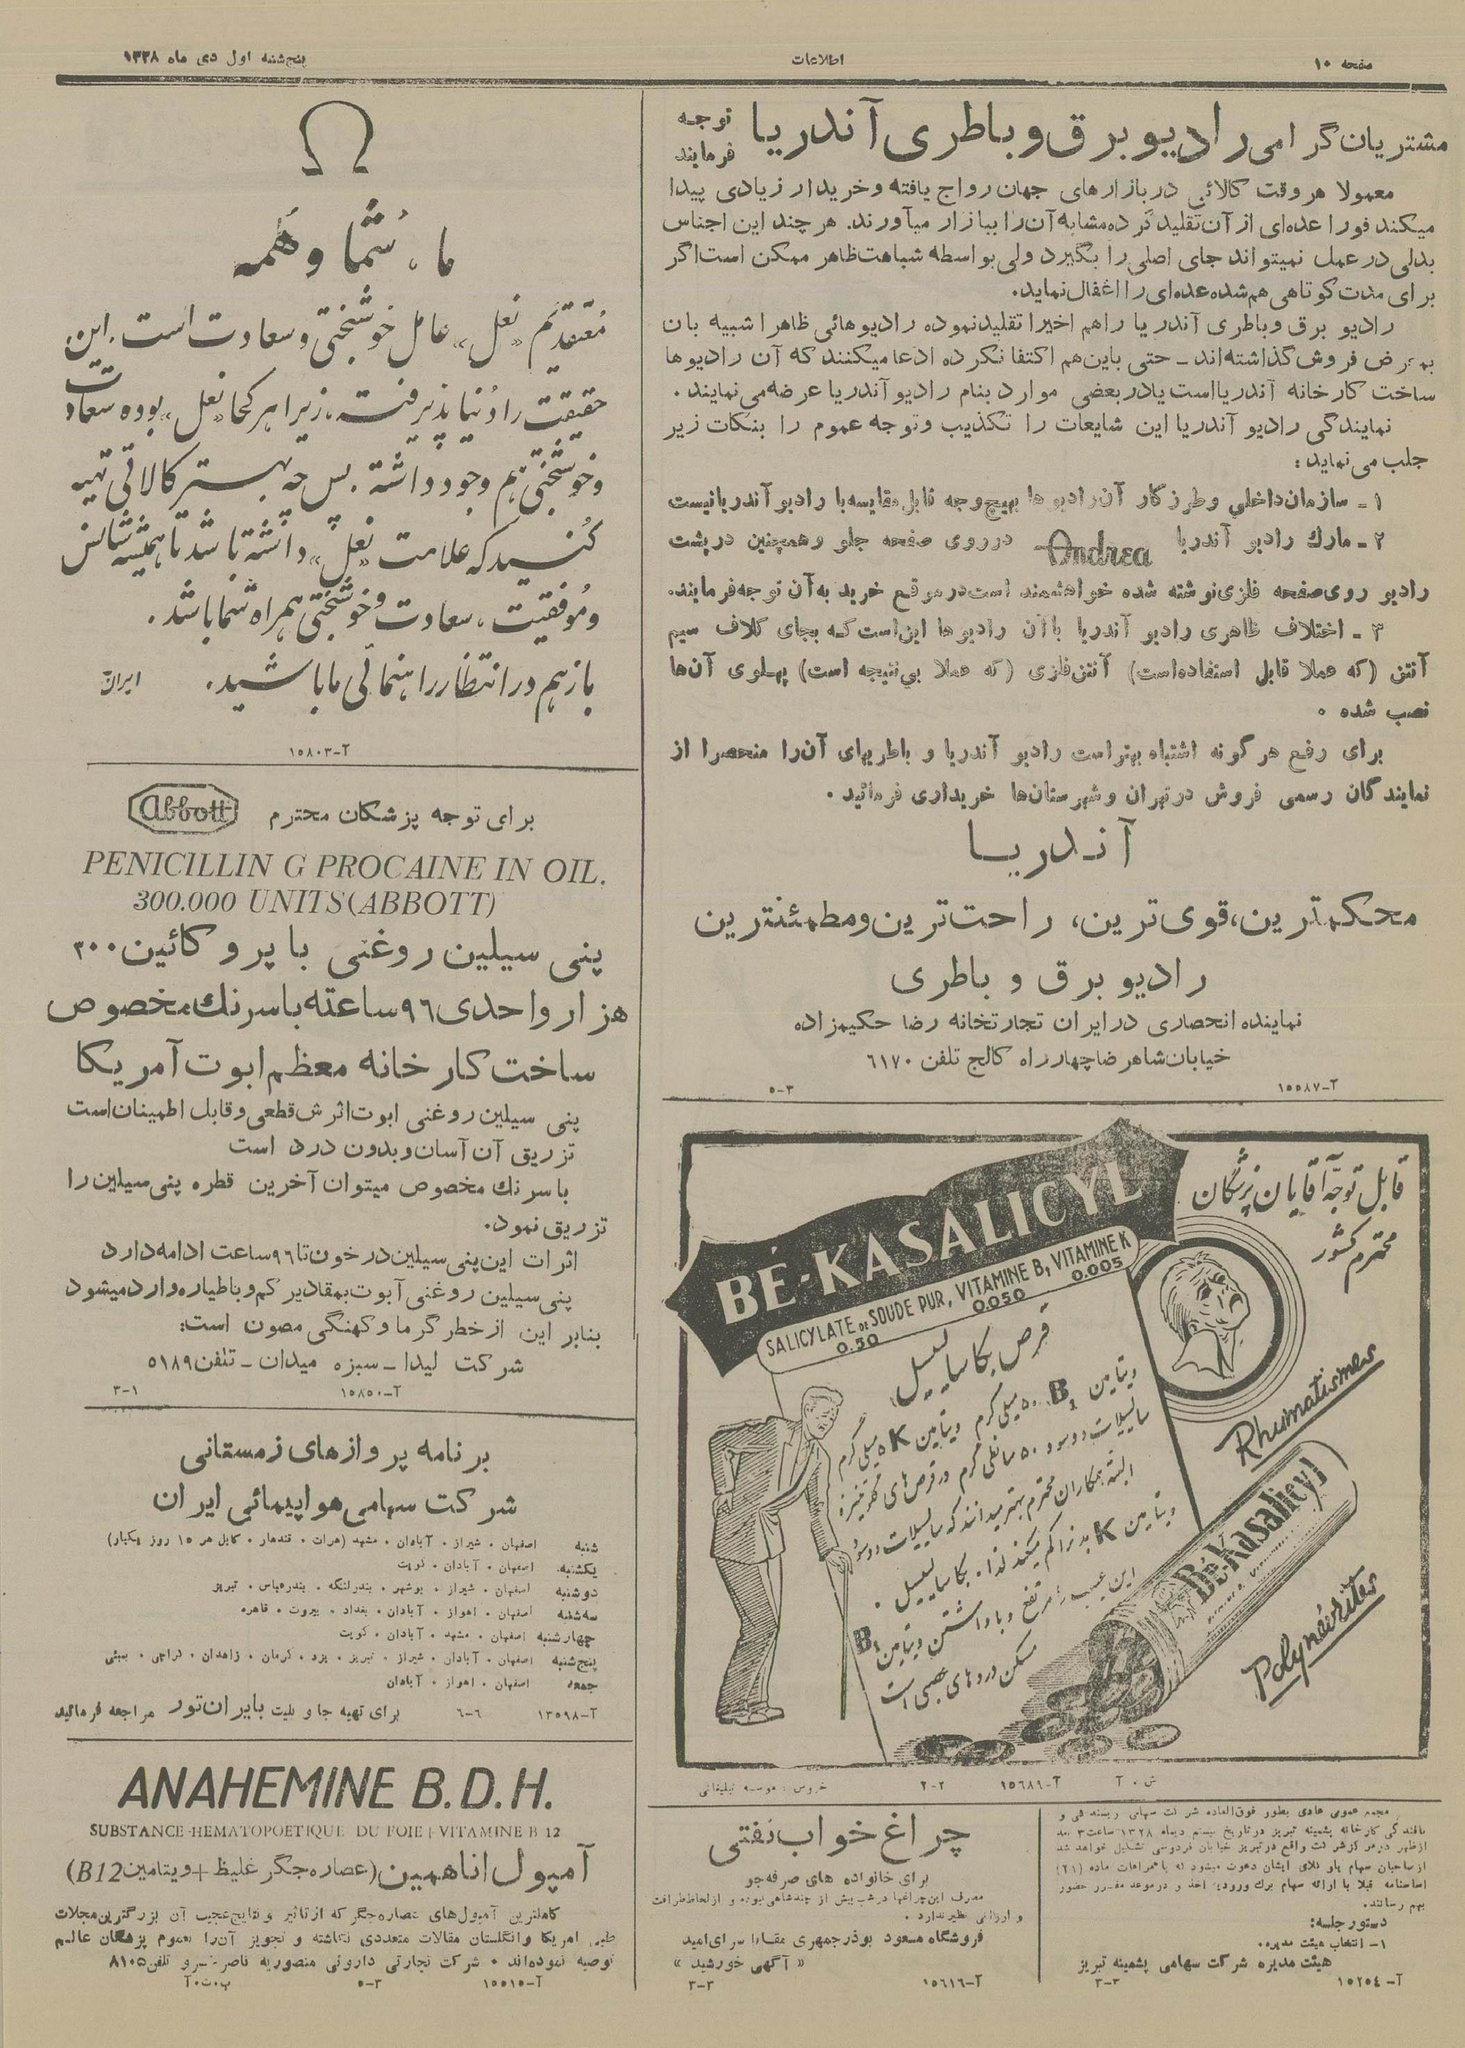 صفحه ۱۰
اطلاعات
پنج‌شنبه اول دی ماه ۱۳۲۸
مشتریان گرامی رادیو برق و باطری آندریا توجه فرمایند
معمولا هر وقت کالائی در بازارهای جهان رواج یافته و خریدار زیادی پیدا
میکند فورا عده‌ای از آن تقلید کرده مشابه آن را ببازار میآورند. هر چند این اجناس
بدلی در عمل نمیتواند جای اصلی را بگیرد ولی بواسطه شباهت ظاهر ممکن است اگر
برای مدت کوتاهی هم شده عده‌ای را اغفال نماید.
رادیو برق و باطری آندریا را هم اخیرا تقلید نموده رادیوهائی ظاهرا شبیه بان
بمعرض فروش گذاشته‌اند ـ حتی باین هم اکتفا نکرده ادعا میکنند که آن رادیوها
ساخت کارخانه آندریا است یا در بعضی موارد بنام رادیو آندریا عرضه می نمایند.
نمایندگی رادیو آندریا این شایعات را تکذیب و توجه عموم را بنکات زیر
جلب می نماید:
۱ ـ سازمان داخلی و طرز کار آن رادیوها بهیچوجه قابل مقایسه با رادیو آندریا نیست
۲ ـ مارك رادیو آندریا Andrea در روی صفحه جلو و همچنین در پشت
رادیو روی صفحه فلزی نوشته شده خواهشمند است در موقع خرید به آن توجه فرمایند.
۳ ـ اختلاف ظاهری رادیو آندریا با آن رادیوها این است که بجای کلاف سیم
آنتن (که عملا قابل استفاده است) آنتن فلزی (که عملا بی نتیجه است) پهلوی آن‌ها
نصب شده .
برای رفع هر گونه اشتباه بهتر است رادیو آندریا و باطریهای آن را منحصرا از
نمایندگان رسمی فروش در تهران و شهرستان‌ها خریداری فرمائید .
آندریا
محکمترین، قوی ترین، راحت ترین و مطمئنترین
رادیو برق و باطری
نماینده انحصاری در ایران تجارتخانه رضا حکیم زاده
خیابان شاهرضا چهارراه کالج تلفن ۶۱۷۰
آ-۱۵۵۸۷ ۳-۵
قابل توجه آقایان پزشکان
محترم کشور
BÉ-KASALICYL
SALICYLATE DE SOUDE PUR, VITAMINE B₁, VITAMINE K
0.50 0.050 0.005
قرص بکاسالیسیل
ویتامین B₁ ۵۰ میلی گرم ویتامین K ۵ میلی گرم
سالیسیلات دوسود ۵۰ سانتی گرم در قرص های
البته همکاران محترم بهتر میدانند که سالیسیلات دوسود
ویتامین K بدن را کم میکند لذا . بکاسالیسیل .
این عیب را مرتفع و با داشتن ویتامین B₁
مسکن دردهای عصبی است
Rhumatismes
Bé-Kasalicyl
Polynévrites
آ-۱۵۶۸۹ ۲-۲
چراغ خواب نفتی
برای خانواده های صرفه جو
مصرف این چراغها در شب بیش از چند شاهی نبوده و از لحاظ ظرافت
و ارزانی نظیر ندارد .
فروشگاه مسعود بوذرجمهری مقابل سرای امید
« آگهی خورشید »
آ-۱۵۶۱۶ ۳-۳
مجمع عمومی عادی بطور فوق‌العاده شرکت سهامی ریسندگی و
بافندگی کارخانه پشمینه تبریز در تاریخ بیستم دیماه ۱۳۲۸ ساعت ۳ بعد
از ظهر در مرکز شرکت واقع در تبریز خیابان فردوسی تشکیل خواهد شد
از صاحبان سهام یا وکلای ایشان دعوت میشود که با مراعات ماده (۲۱)
اساسنامه قبلا با ارائه سهام برك ورودیه اخذ و در موعد مقرر حضور
بهم رسانند.
دستور جلسه:
۱- انتخاب هیئت مدیره.
هیئت مدیره شرکت سهامی پشمینه تبریز
آ-۱۵۲۵۴ ۳-۳
Ω
ما، شما و همه
معتقدیم «نعل» عامل خوشبختی و سعادت است. این
حقیقت را دنیا پذیرفته، زیرا هر کجا «نعل» بوده سعادت
و خوشبختی هم وجود داشته. پس چه بهتر کالائی تهیه
کنید که علامت «نعل» داشته باشد تا همیشه شانس
و موفقیت، سعادت و خوشبختی همراه شما باشد.
باز هم در انتظار راهنمائی ما باشید.
آ-۱۵۸۰۳
Abbott
برای توجه پزشکان محترم
PENICILLIN G PROCAINE IN OIL.
300.000 UNITS (ABBOTT)
پنی سیلین روغنی با پروکائین ۳۰۰
هزار واحدی ۹۶ ساعته با سرنك مخصوص
ساخت کارخانه معظم ابوت آمریکا
پنی سیلین روغنی ابوت اثرش قطعی و قابل اطمینان است
تزریق آن آسان و بدون درد است
با سرنك مخصوص میتوان آخرین قطره پنی سیلین را
تزریق نمود.
اثرات این پنی سیلین در خون تا ۹۶ ساعت ادامه دارد
پنی سیلین روغنی آبوت بمقادیر کم و با طیاره وارد میشود
بنابر این از خطر گرما و کهنگی مصون است:
شرکت لیدا ـ سبزه میدان ـ تلفن ۵۱۸۹
آ-۱۵۸۵۰ ۱-۳
برنامه پروازهای زمستانی
شرکت سهامی هواپیمائی ایران
شنبه اصفهان . شیراز . آبادان . مشهد (هرات . قندهار . کابل هر ۱۵ روز یکبار)
یکشنبه اصفهان . آبادان . کویت
دوشنبه اصفهان . شیراز . بوشهر . بندرلنگه . بندرعباس . تبریز
سه‌شنبه اصفهان . اهواز . آبادان . بغداد . بیروت . قاهره
چهارشنبه اصفهان . مشهد . آبادان . کویت
پنج‌شنبه اصفهان . آبادان . شیراز . تبریز . یزد . کرمان . زاهدان . کراچی . بمبئی
جمعه اصفهان . اهواز . آبادان
برای تهیه جا و بلیت بایران تور مراجعه فرمائید
آ-۱۳۵۹۸ ۶-۶
ANAHEMINE B.D.H.
SUBSTANCE HEMATOPOETIQUE DU FOIE + VITAMINE B 12
آمپول اناهمین (عصاره جگر غلیظ + ویتامین B12)
کاملترین آمپول‌های عصاره جگر که از تاثیر و نتایج عجیب آن بزرگترین مجلات
طبی امریکا و انگلستان مقالات متعددی نگاشته و تجویز آن را بعموم پزشکان عالم
توصیه نموده‌اند . شرکت تجارتی داروئی منصوریه ناصرخسرو تلفن ۸۱۰۵
آ-۱۵۵۱۵ ۳-۵